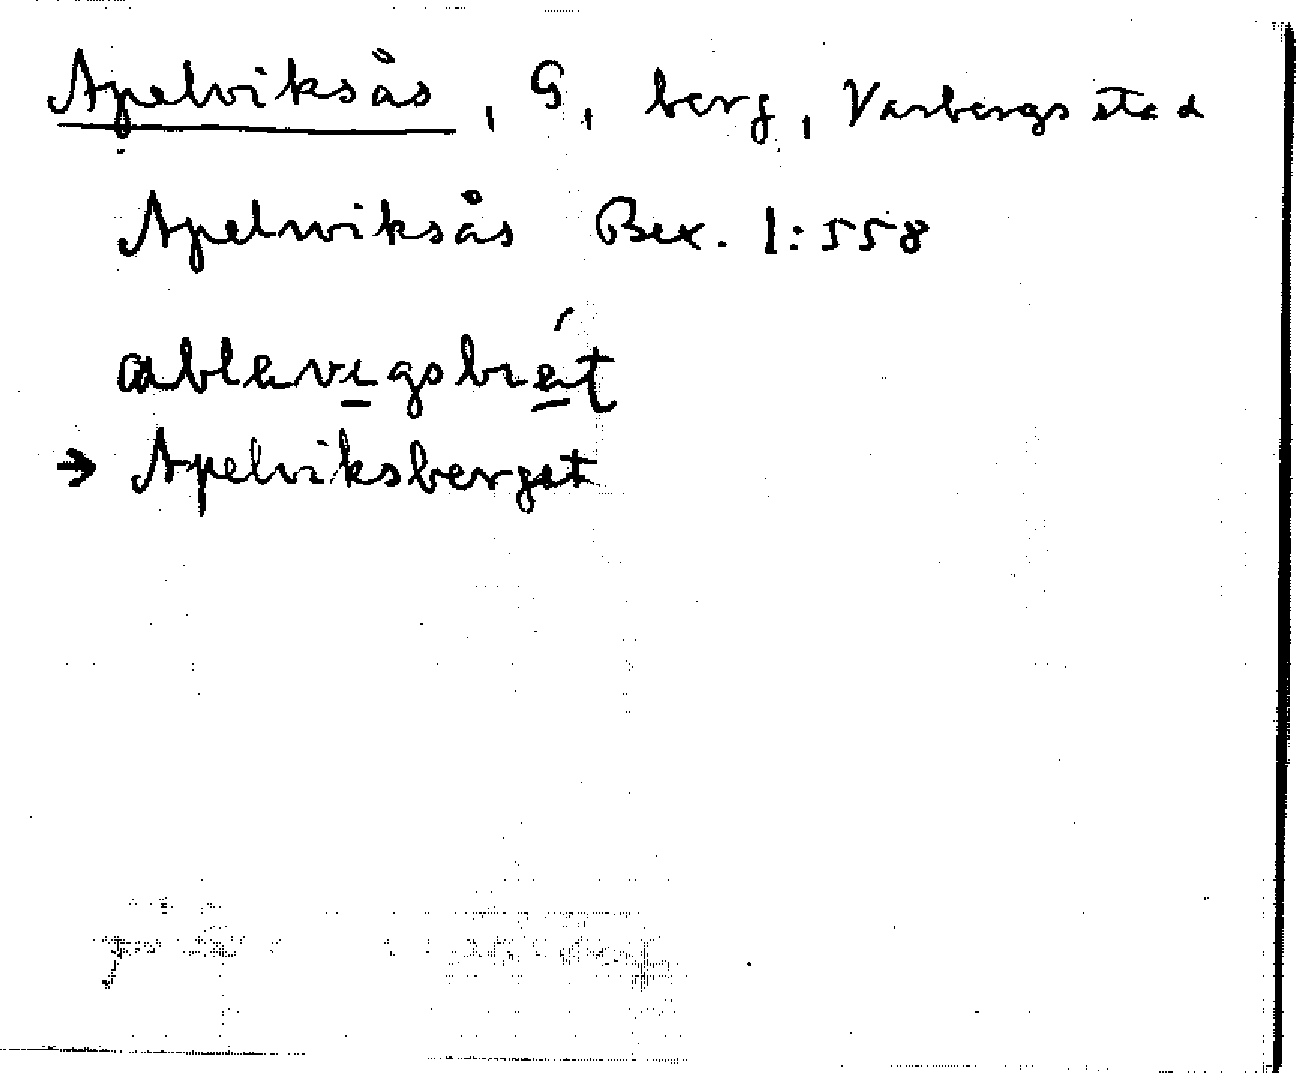 Apelviksås, G, berg, Varbergs stad
Apelwiksås Bex. 1:558
→ Apelviksberget